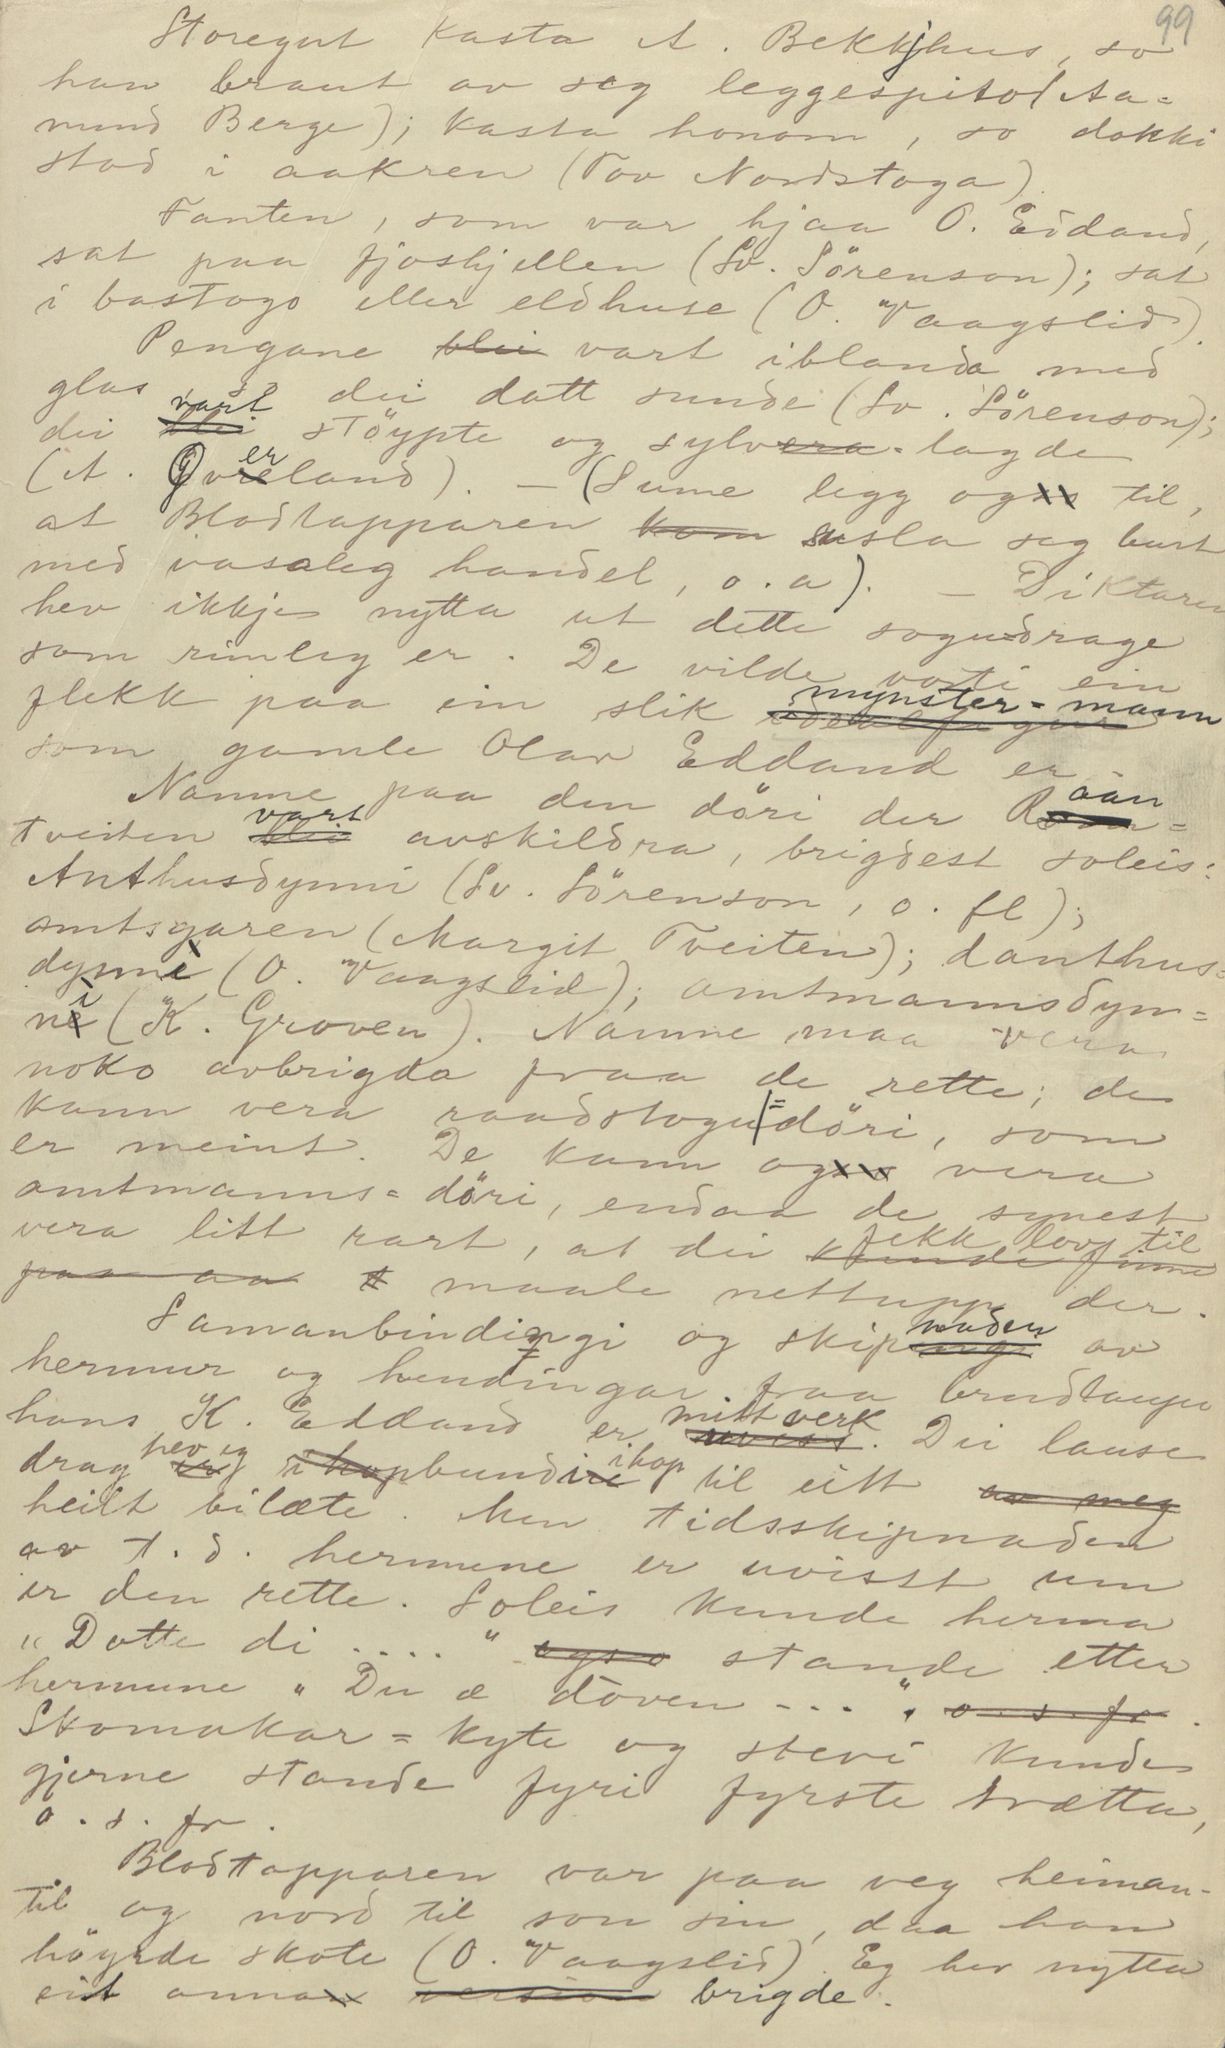 99
Storegut kasta A. Bekkjhus, so
han braut av seg leggespito (Aa=
mund Berge); kasta honom, so dokki
stod i aakren (Tov Nordstoga).
Fanten, som var hjaa O. Eddand,
sat paa fjoshjellen (Sv. Sörenson); sat
i bastogo eller eldhuse (O. Vaagslid).
Pengane blei vart iblanda med
glas so dei datt sunde (Sv. Sörenson);
dei blei vart stöypte og sylvera-lagde
(A. Överland). – (Sume legg og til,
at Blodtapparen kom susla seg burt
med vasaleg handel, o. a). – Diktaren
hev ikkje nytta ut dette sogudrage
som rimleg er. De vilde vorti ein
flekk paa ein slik idealfigur mynster=mann
som gamle Olav Eddand er.
Namne paa den döri der Raan=
tveiten blei vart avskildra, brigdest soleis:
Anthusdynni (Sv. Sörenson, o. fl);
amtsgaren (Margit Tveiten); danthus=
dynni (O. Vaagslid); amtmannsdyn=
ni (K. Groven). Namne maa vera
noko avbrigda fraa de rette; de
kann vera raadstogu=döri, som
er meint. De kann og vera
amtmanns=döri, endaa de synest
vera litt rart, at dei kunde finne fekk lov til
paa aa maale nettupp der.
Samanbindingi og skipnaden av
hermur og hendingar fraa brudlaupe
hans K. Eddand er mitt verk. Dei lause
drag hev eg ihopbundi ihop til eitt av meg
heilt bilæte. Men tidsskipnaden
av t. d. hermene er uvisst um
er den rette. Soleis kunde herma
"Dotte di ...." ogso stande etter
hermune "Du æ doven ...". o. s. fr.
Skomakar=kyte og stevi kunde
gjerne stande fyri fyrste trætta,
o. s. fr.
Blodtapparen var paa veg heiman-
til og nord til son sin, daa han
höyrde skote (O. Vaagslid). Eg hev nytta
eit anna version brigde.